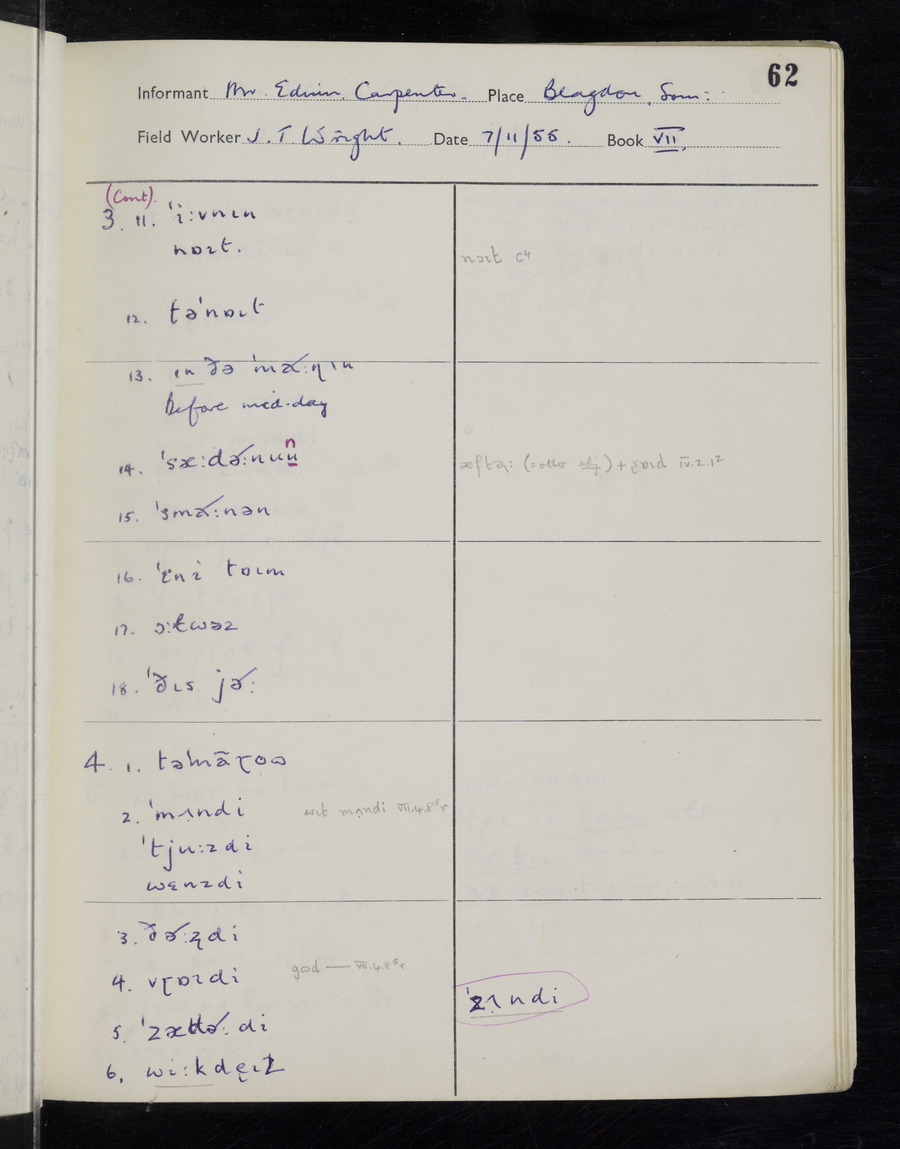 62
Informant Mr. Edwin Carpenter. Place Blagdon, Som:
Field Worker J. T Wright. Date 7/11/56. Book VII.
(Cont).
3. 11. ˈiːvnɪn
nɒɪt.
nɔɪt c4
12. təˈnɒɪt
13. ɪn ðə ˈmɑ˞ːɳɪn
Before mid-day
14. ˈsæːdə˞ːnuu n
15. ˈsmɑ˞ːnən
16. ˈɛni tɒɪm
17. ɔːtwəz
18. ˈðɪs jə˞ː
4. 1. təˈmãɽoɷ
2. ˈmʌ̣ndi wɪt mʌ̣ndi VII.4.8⁵r
ˈtjuːzdi
wɛnzdi
3. ðə˞ːʐdi
4. vɽɒɪdi god — VII.4.8⁵r
ˈzʌ̣ndi
5. ˈzætə˞ːdi
6. wiːkdęɪz